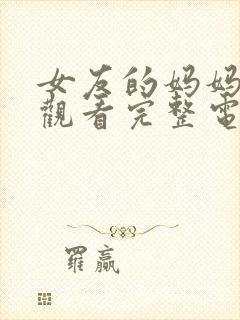 女友的妈妈
觀看完整電
羅赢